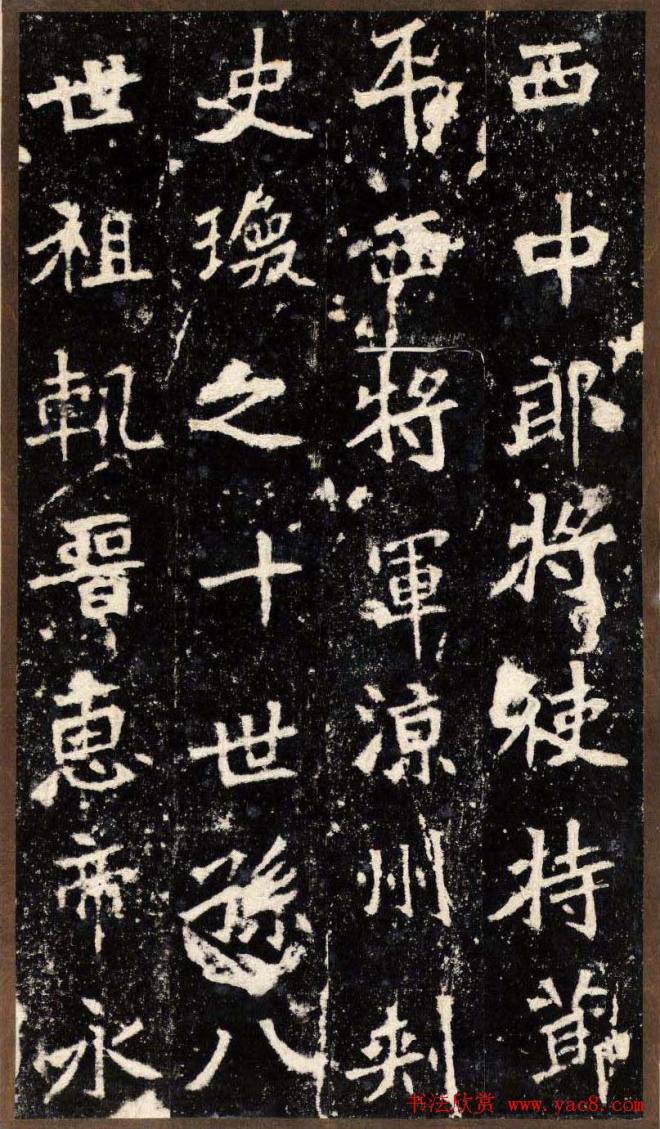 西中郎將使持節
平西將軍涼州刾
史瓊之十世孫八
世祖軌晉惠帝永
书法欣赏 www.yac8.com